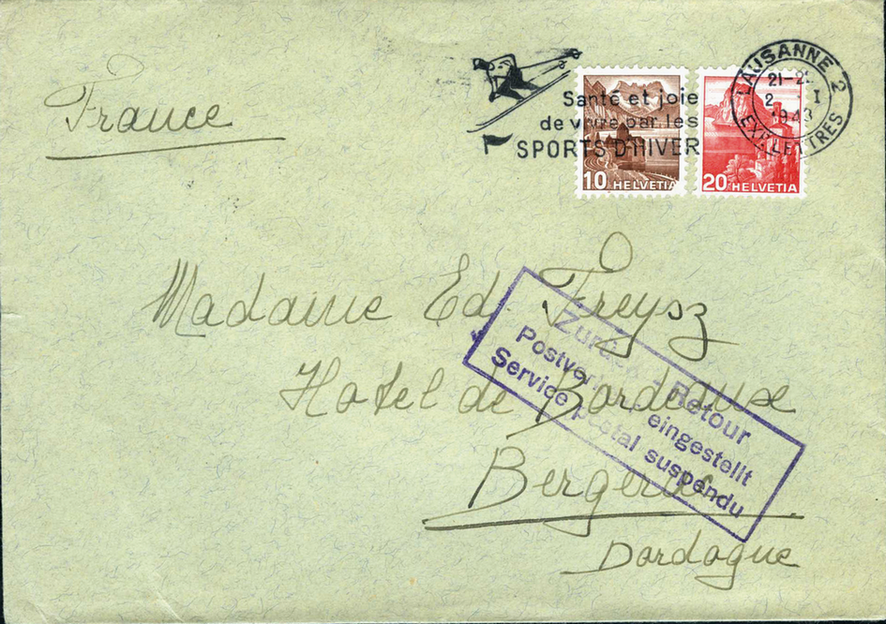 France
Santé et joie
de vivre par les
SPORTS D'HIVER
LAUSANNE 2
21-2
2 I
EXP. LETTRES
10 HELVETIA
20 HELVETIA
Madame Ed. Freysz
Hotel de Bordeaux
Bergerac
Dordogne
Zurück - Retour
Postverkehr eingestellt
Service postal suspendu